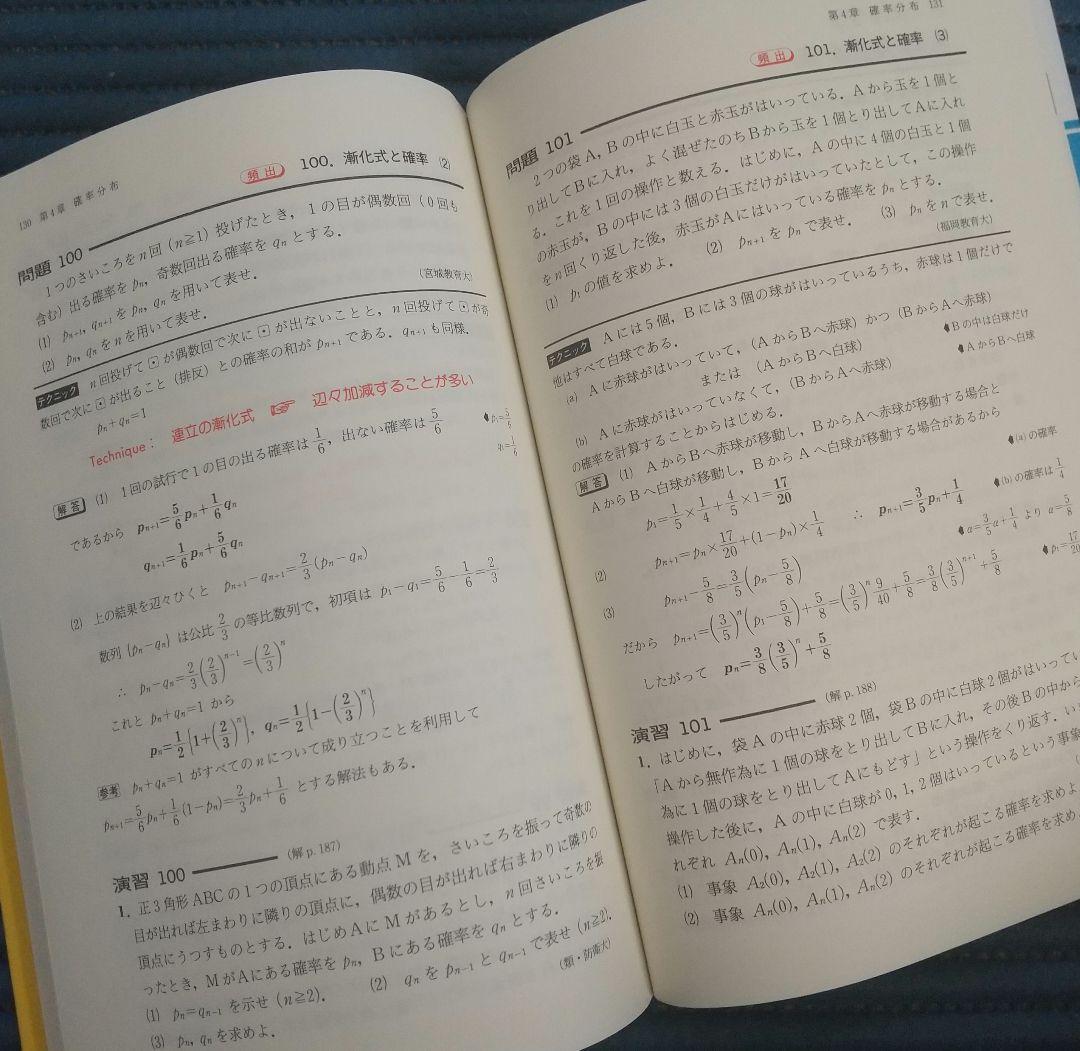 130 第4章 確率分布
頻出 100. 漸化式と確率 (2)
問題 100
1つのさいころをn回 (n≧1) 投げたとき, 1の目が偶数回 (0回も
含む) 出る確率を pₙ, 奇数回出る確率を qₙ とする.
(1) pₙ₊₁, qₙ₊₁ を pₙ, qₙ を用いて表せ.
(2) pₙ, qₙ を n を用いて表せ.
(宮城教育大)
テクニック n回投げて⚀が偶数回で次に⚀が出ないことと, n回投げて⚀が奇
数回で次に⚀が出ること (排反) との確率の和が pₙ₊₁ である. qₙ₊₁ も同様.
pₙ+qₙ=1
Technique: 連立の漸化式 ☞ 辺々加減することが多い
解答 (1) 1回の試行で1の目の出る確率は 1/6, 出ない確率は 5/6
であるから pₙ₊₁=5/6 pₙ+1/6 qₙ
p₁=5/6
qₙ₊₁=1/6 pₙ+5/6 qₙ
q₁=1/6
(2) 上の結果を辺々ひくと pₙ₊₁-qₙ₊₁=2/3(pₙ-qₙ)
数列 {pₙ-qₙ} は公比 2/3 の等比数列で, 初項は p₁-q₁=5/6-1/6=2/3
∴ pₙ-qₙ=2/3(2/3)ⁿ⁻¹=(2/3)ⁿ
これと pₙ+qₙ=1 から
pₙ=1/2{1+(2/3)ⁿ}, qₙ=1/2{1-(2/3)ⁿ}
参考 pₙ+qₙ=1 がすべてのnについて成り立つことを利用して
pₙ₊₁=5/6 pₙ+1/6(1-pₙ)=2/3 pₙ+1/6 とする解法もある.
演習 100 (解 p.187)
1. 正3角形ABCの1つの頂点にある動点Mを, さいころを振って奇数の
目が出れば左まわりに隣りの頂点に, 偶数の目が出れば右まわりに隣りの
頂点にうつすものとする. はじめAにMがあるとし, n回さいころを振
ったとき, MがAにある確率を pₙ, Bにある確率を qₙ とする.
(1) pₙ=qₙ₋₁ を示せ (n≧2). (2) qₙ を pₙ₋₁ と qₙ₋₁ で表せ (n≧2).
(3) pₙ, qₙ を求めよ.
(類・防衛大)
第4章 確率分布 131
頻出 101. 漸化式と確率 (3)
問題 101
2つの袋A, Bの中に白玉と赤玉がはいっている. Aから玉を1個と
り出してBに入れ, よく混ぜたのちBから玉を1個とり出してAに入れ
る. これを1回の操作と数える. はじめに, Aの中に4個の白玉と1個
の赤玉が, Bの中には3個の白玉だけがはいっていたとして, この操作
をn回くり返した後, 赤玉がAにはいっている確率を pₙ とする.
(1) p₁ の値を求めよ. (2) pₙ₊₁ を pₙ で表せ. (3) pₙ を n で表せ.
(福岡教育大)
テクニック Aには5個, Bには3個の球がはいっているうち, 赤球は1個だけで
他はすべて白球である.
(a) Aに赤球がはいっていて, (AからBへ赤球) かつ (BからAへ赤球)
または (AからBへ白球)
Bの中は白球だけ
(b) Aに赤球がはいっていなくて, (BからAへ赤球)
AからBへ白球
の確率を計算することからはじめる.
解答 (1) AからBへ赤球が移動し, BからAへ赤球が移動する場合と
AからBへ白球が移動し, BからAへ白球が移動する場合があるから
p₁=1/5×1/4+4/5×1=17/20
(a)の確率
(2) pₙ₊₁=pₙ×17/20+(1-pₙ)×1/4 ∴ pₙ₊₁=3/5 pₙ+1/4
(b)の確率は 1/4
(3) pₙ₊₁-5/8=3/5(pₙ-5/8)
α=3/5 α+1/4 より α=5/8
だから pₙ₊₁=(3/5)ⁿ(p₁-5/8)+5/8=(3/5)ⁿ 9/40+5/8=3/8(3/5)ⁿ⁺¹+5/8
p₁=17/20
したがって pₙ=3/8(3/5)ⁿ+5/8
演習 101 (解 p.188)
1. はじめに, 袋Aの中に赤球2個, 袋Bの中に白球2個がはいってい
「Aから無作為に1個の球をとり出してBに入れ, その後Bの中から
為に1個の球をとり出してAにもどす」という操作をくり返す. い
操作した後に, Aの中に白球が0, 1, 2個はいっているという事象
れぞれ Aₙ(0), Aₙ(1), Aₙ(2) で表す.
(1) 事象 A₂(0), A₂(1), A₂(2) のそれぞれが起こる確率を求めよ
(2) 事象 Aₙ(0), Aₙ(1), Aₙ(2) のそれぞれが起こる確率を求め